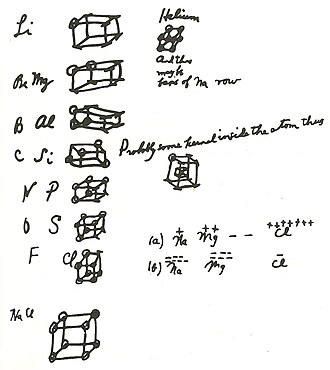 Li
Helium
And this
might
base of Na row
Be Mg
B Al
C Si
Probably some kernel inside the atom thus
N P
O S
F Cl
(a) + Na ++ Mg - - +++++++ Cl
(b) Na Mg - Cl
Na Cl